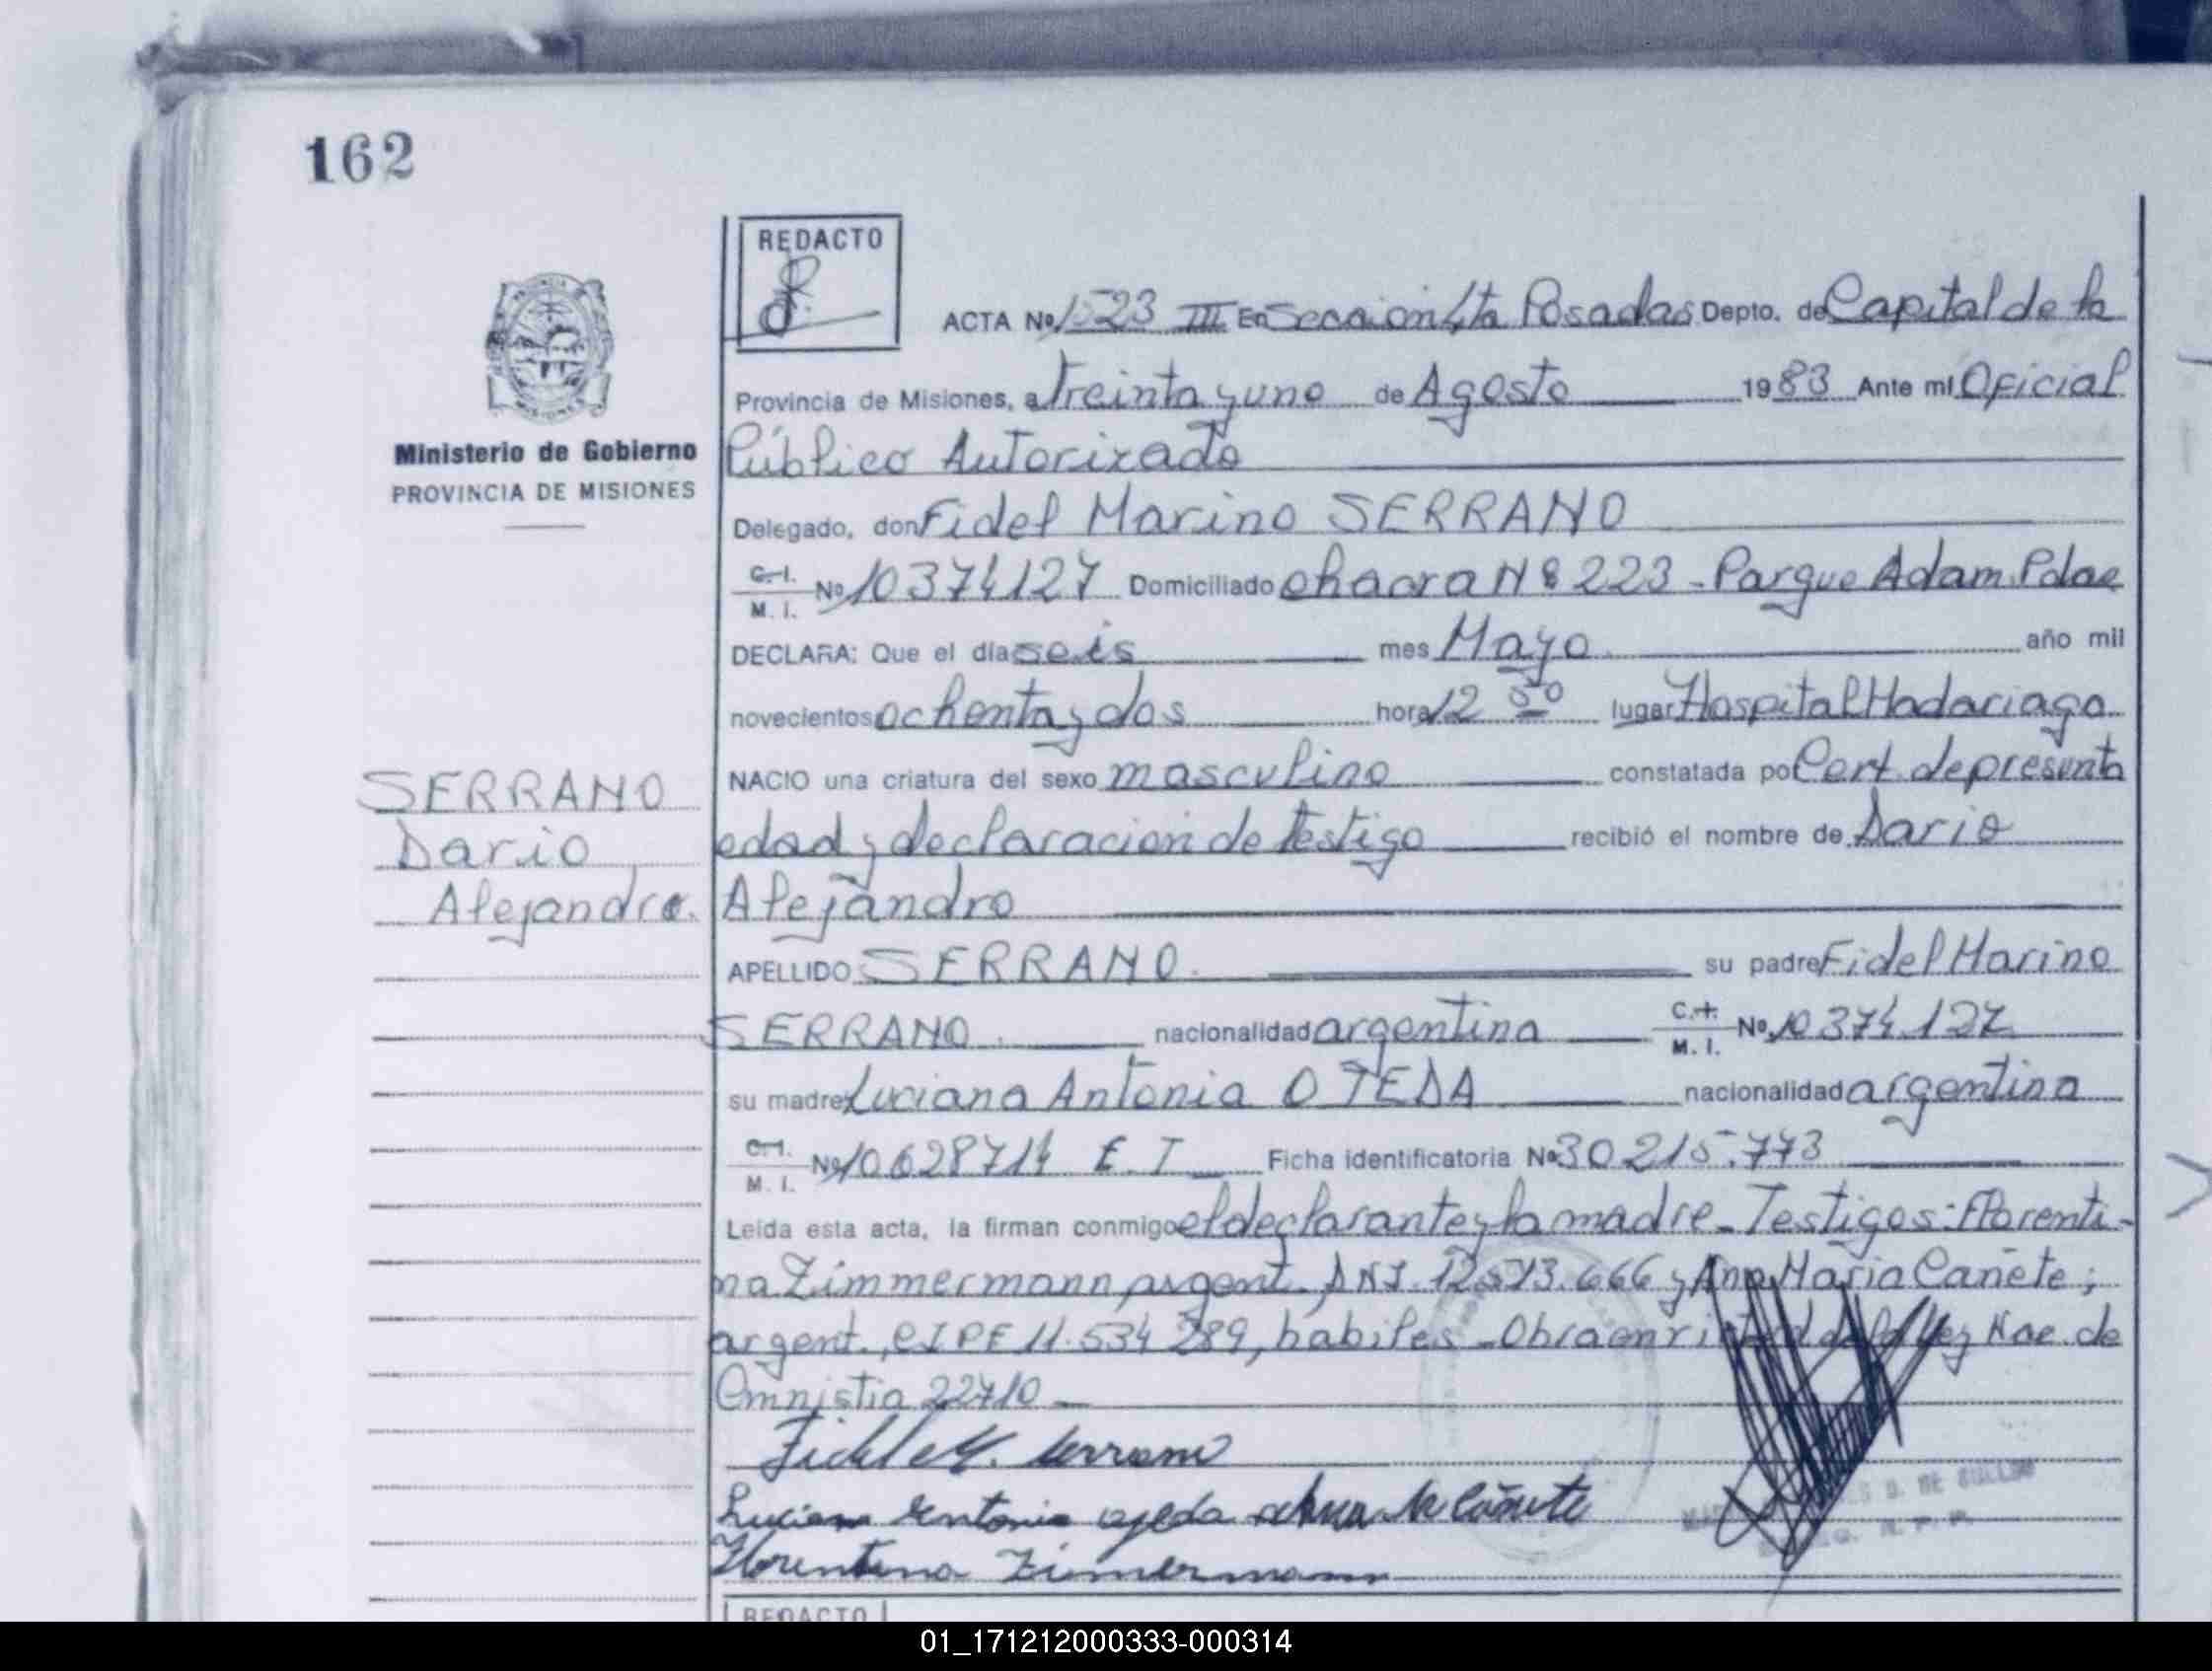 162
REDACTO
ACTA Nº 1523 III En Sección 4ta Posadas Depto. de Capital de la
Provincia de Misiones, a treinta y uno de Agosto 1983 Ante mí Oficial
Ministerio de Gobierno
PROVINCIA DE MISIONES
Público Autorizado
Delegado, don Fidel Marino SERRANO
C.I. M. I. Nº 10374127 Domiciliado chacra Nº 223 - Parque Adam. Pdas
DECLARA: Que el día seis mes Mayo año mil
novecientos ochenta y dos hora 12 50 lugar Hospital Madariaga
SERRANO
Dario
Alejandro.
NACIO una criatura del sexo masculino constatada por Cert. de presunta
edad y declaración de testigo recibió el nombre de Dario
Alejandro
APELLIDO SERRANO. su padre Fidel Marino
SERRANO. nacionalidad argentina C.I. M. I. Nº 10374.127
su madre Luciana Antonia OJEDA nacionalidad argentina
C.I. M. I. Nº 10628714 E. T Ficha identificatoria Nº 30215.773
Leída esta acta, la firman conmigo el declarante y la madre - Testigos: Florenti-
na Zimmermann argent. DNI. 12.513.666 y Ana María Cañete;
argent., CIPF 11.534 289, habiles - Obra en de la Ley Nac. de
Emnistia 22410
Fidel M. Serrano
Luciana Antonia ojeda Ana M Cañete
Florentina Zimmermann
D. DE
REDACTO
01_171212000333-000314